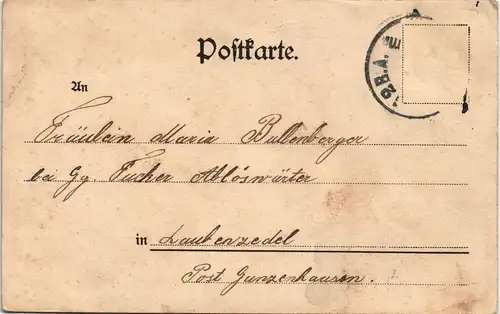 Postkarte.
An
Fräulein Maria Bullenberger
bei Gg. Fucher Ablöswärter
in Laubenzedel
Post Gunzenhausen.